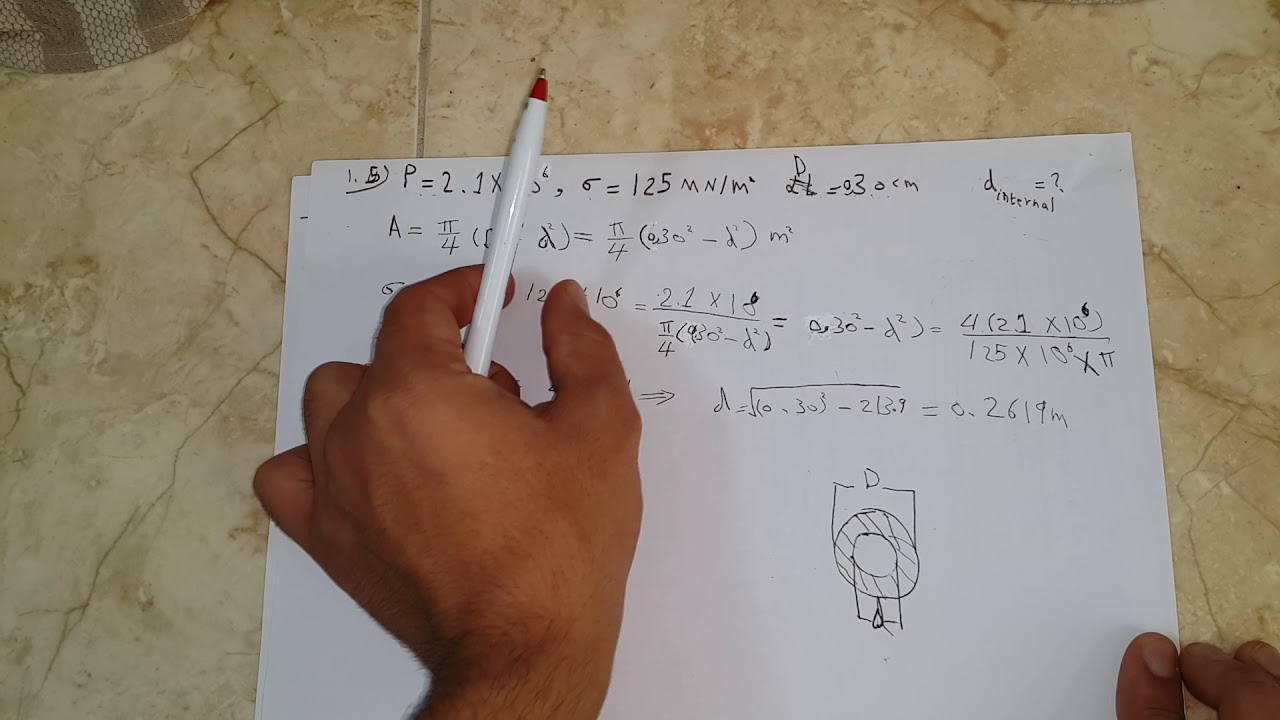 1.5) P = 2.1 X 10⁶, σ = 125 MN/m² D = 0.30 cm d internal = ?
A = π/4 ( d²) = π/4 (0.30² - d²) m²
σ 10⁶ = 2.1 X 10⁶ / π/4 (0.30² - d²) = 0.30² - d²) = 4 (2.1 X 10⁶) / 125 X 10⁶ X π
⇒ d = √(0.30)² - 213.9 = 0.2619 m
D
d